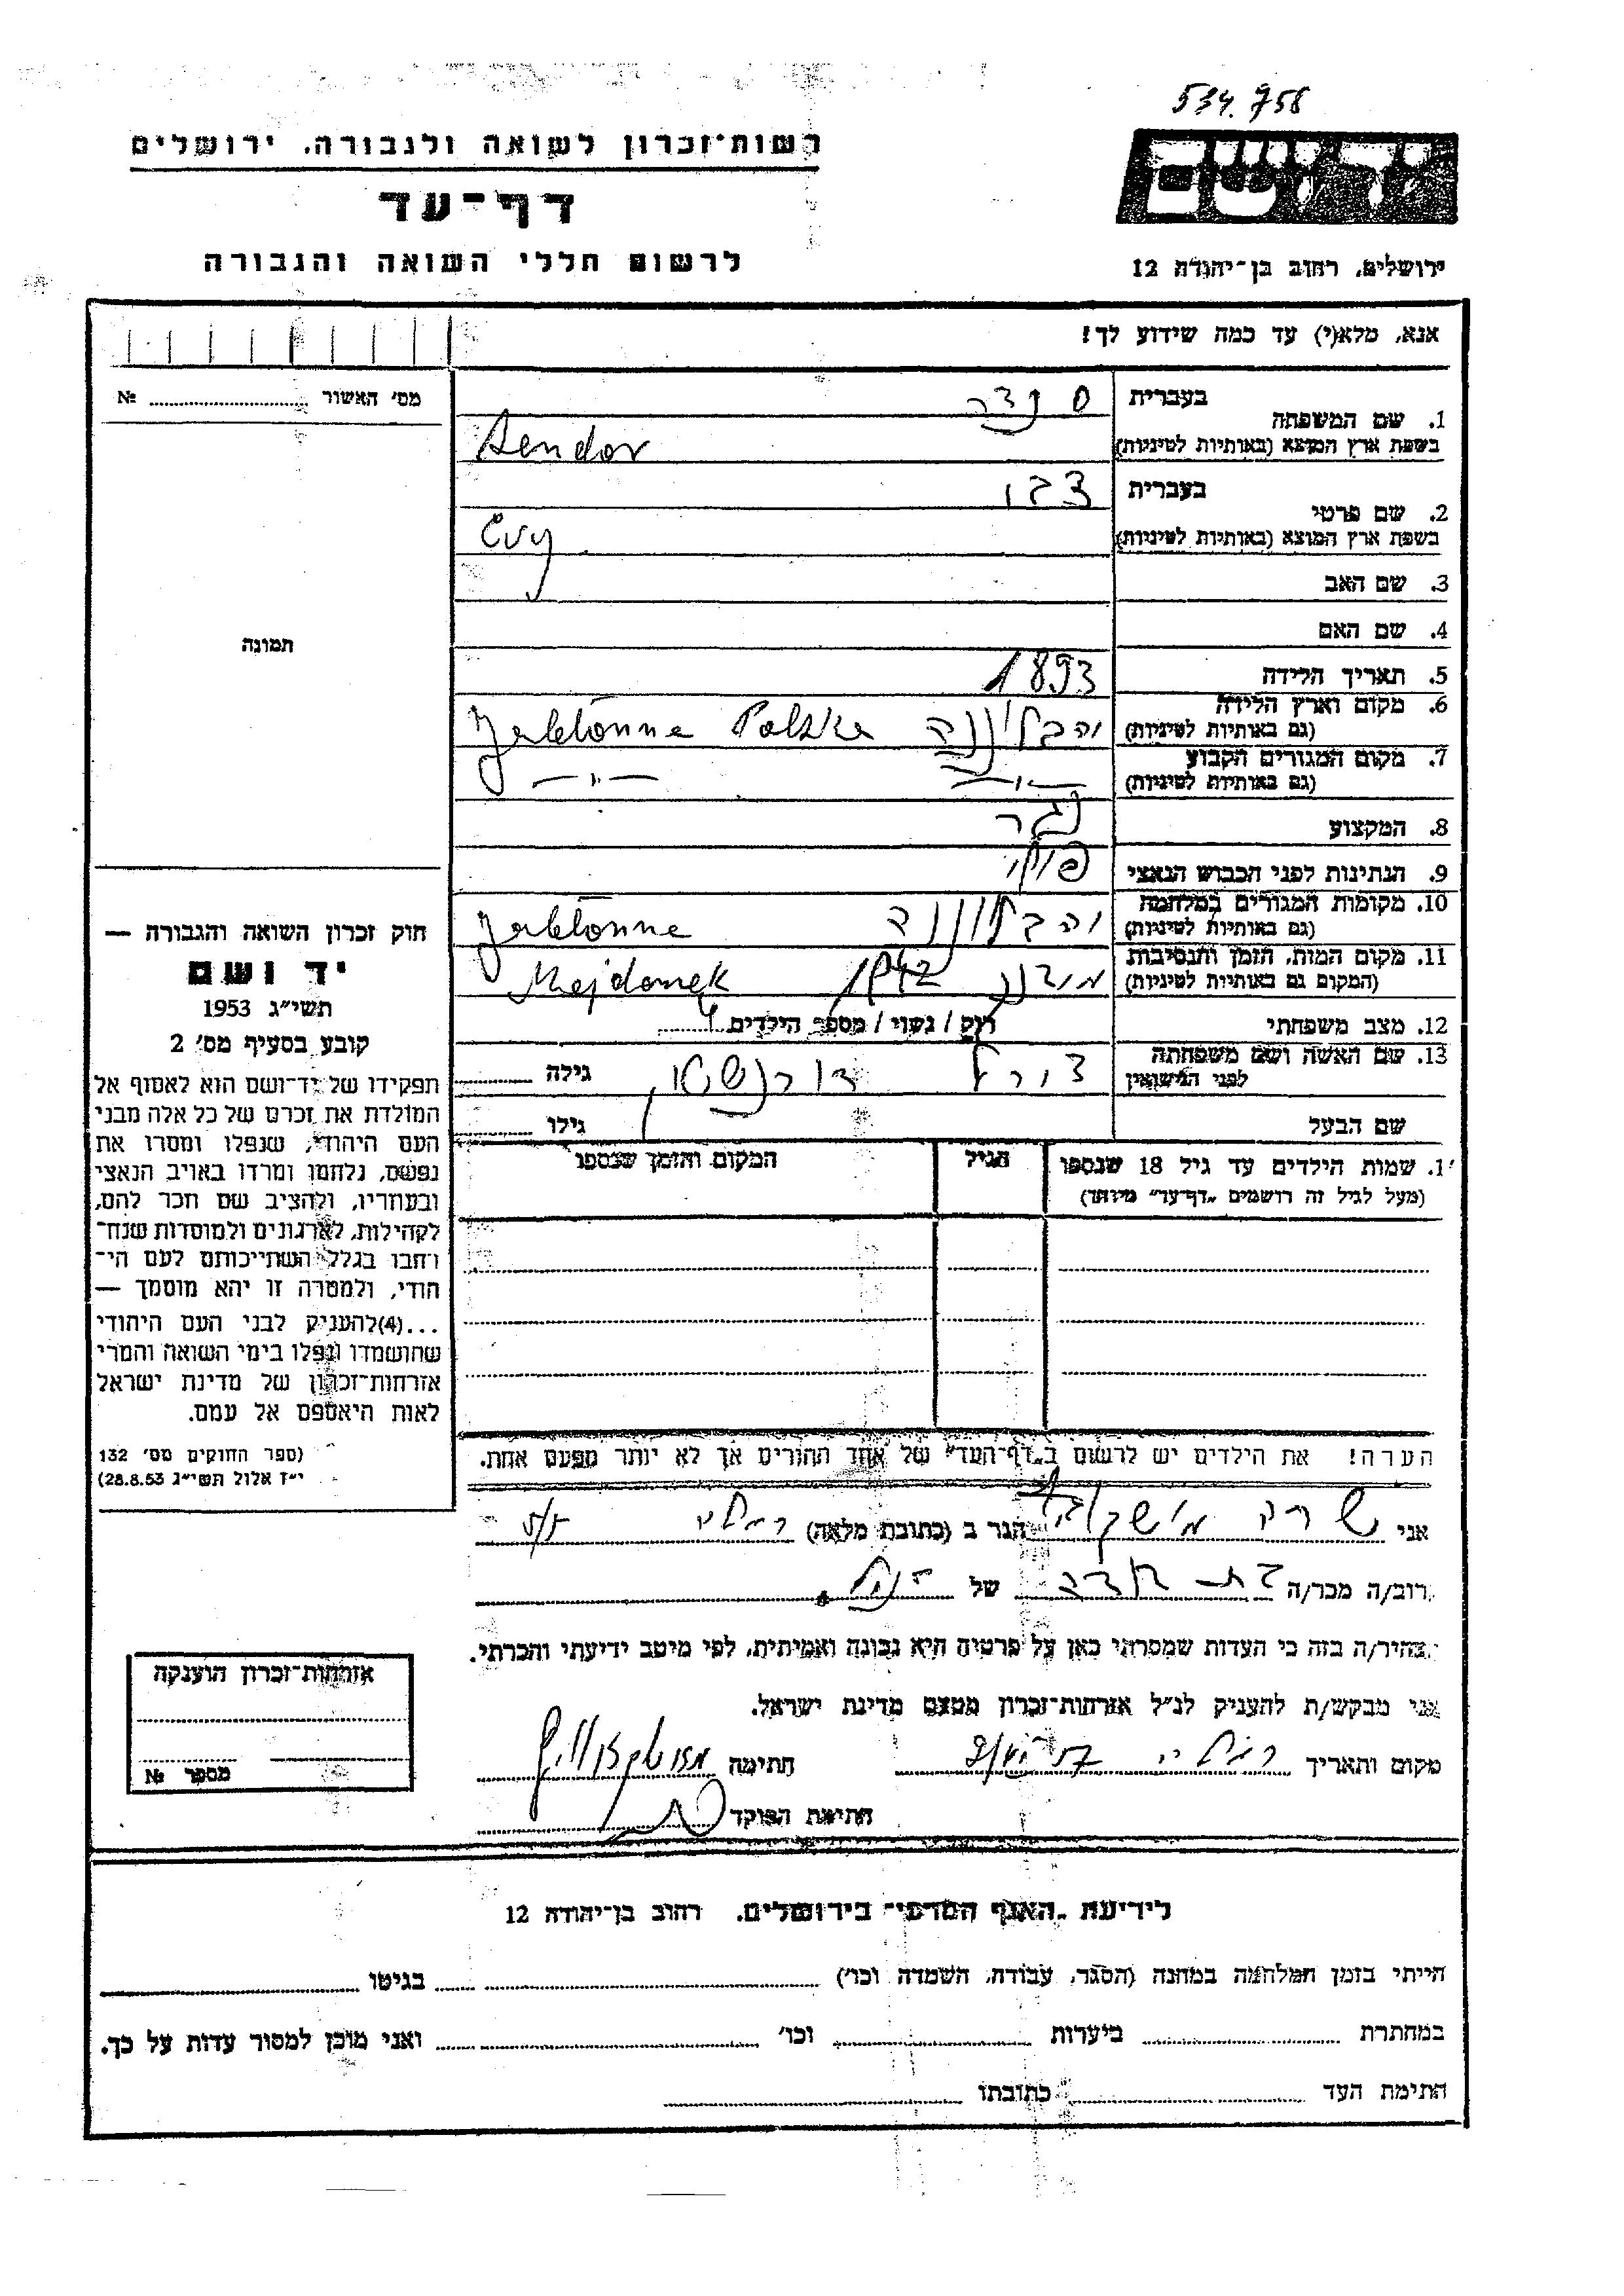 534.758
רשות־זכרון לשואה ולגבורה, ירושלים
יד ושם
דף־עד
לרשום חללי השואה והגבורה
ירושלים, רחוב בן־יהודה 12
אנא, מלא(י) עד כמה שידוע לך!
מס׳ האשור № 
1. שם המשפחה
בעברית
סנדר
בשפת ארץ המוצא (באותיות לטיניות)
Sendor
2. שם פרטי
בעברית
צבי
בשפת ארץ המוצא (באותיות לטיניות)
Cvy
3. שם האב
4. שם האם
תמונה
5. תאריך הלידה
1893
6. מקום וארץ הלידה
(גם באותיות לטיניות)
Jablonna Polska
7. מקום המגורים הקבוע
(גם באותיות לטיניות)
—"— —"—
8. המקצוע
נגר
9. הנתינות לפני הכבוש הנאצי
פולני
10. מקומות המגורים במלחמה
(גם באותיות לטיניות)
Jablonna
11. מקום המות, הזמן והנסיבות
(המקום גם באותיות לטיניות)
מידנק 1942 Majdanek
12. מצב משפחתי
רוק / נשוי / מספר הילדים 4
13. שם האשה ושם משפחתה
לפני הנישואין
גילה
שם הבעל
גילו
1. שמות הילדים עד גיל 18 שנספו
(מעל לגיל זה רושמים „דף־עד” מיוחד)
הגיל
המקום והזמן שנספו
חוק זכרון השואה והגבורה —
יד ושם
תשי״ג 1953
קובע בסעיף מס׳ 2
תפקידו של יד־ושם הוא לאסוף אל
המולדת את זכרם של כל אלה מבני
העם היהודי, שנפלו ומסרו את
נפשם, נלחמו ומרדו באויב הנאצי
ובעוזריו, ולהציב שם וזכר להם,
לקהילות, לארגונים ולמוסדות שנח־
רבו בגלל השתייכותם לעם הי־
הודי, ולמטרה זו יהא מוסמך —
...(4)להעניק לבני העם היהודי
שהושמדו ונפלו בימי השואה והמרי
אזרחות־זכרון של מדינת ישראל
לאות היאספם אל עמם.
(ספר החוקים מס׳ 132
י״ז אלול תשי״ג 28.8.53)
הערה! את הילדים יש לרשום ב„דף־העד” של אחד ההורים אך לא יותר מפעם אחת.
אני שרה הגר ב (כתובת מלאה)
רוב/ה מכר/ה של
צהיר/ה בזה כי העדות שמסרתי כאן על פרטיה היא נכונה ואמיתית, לפי מיטב ידיעתי והכרתי.
אני מבקש/ת להעניק לנ״ל אזרחות־זכרון מטעם מדינת ישראל.
מקום ותאריך
חתימה
חתימת הפוקד
אזרחות־זכרון הוענקה
מספר №
לידיעת „האגף המדעי” בירושלים, רחוב בן־יהודה 12
הייתי בזמן המלחמה במחנה (הסגר, עבודה, השמדה וכו׳) בגיטו
במחתרת ביערות וכו׳ ואני מוכן למסור עדות על כך.
חתימת העד כתובתו